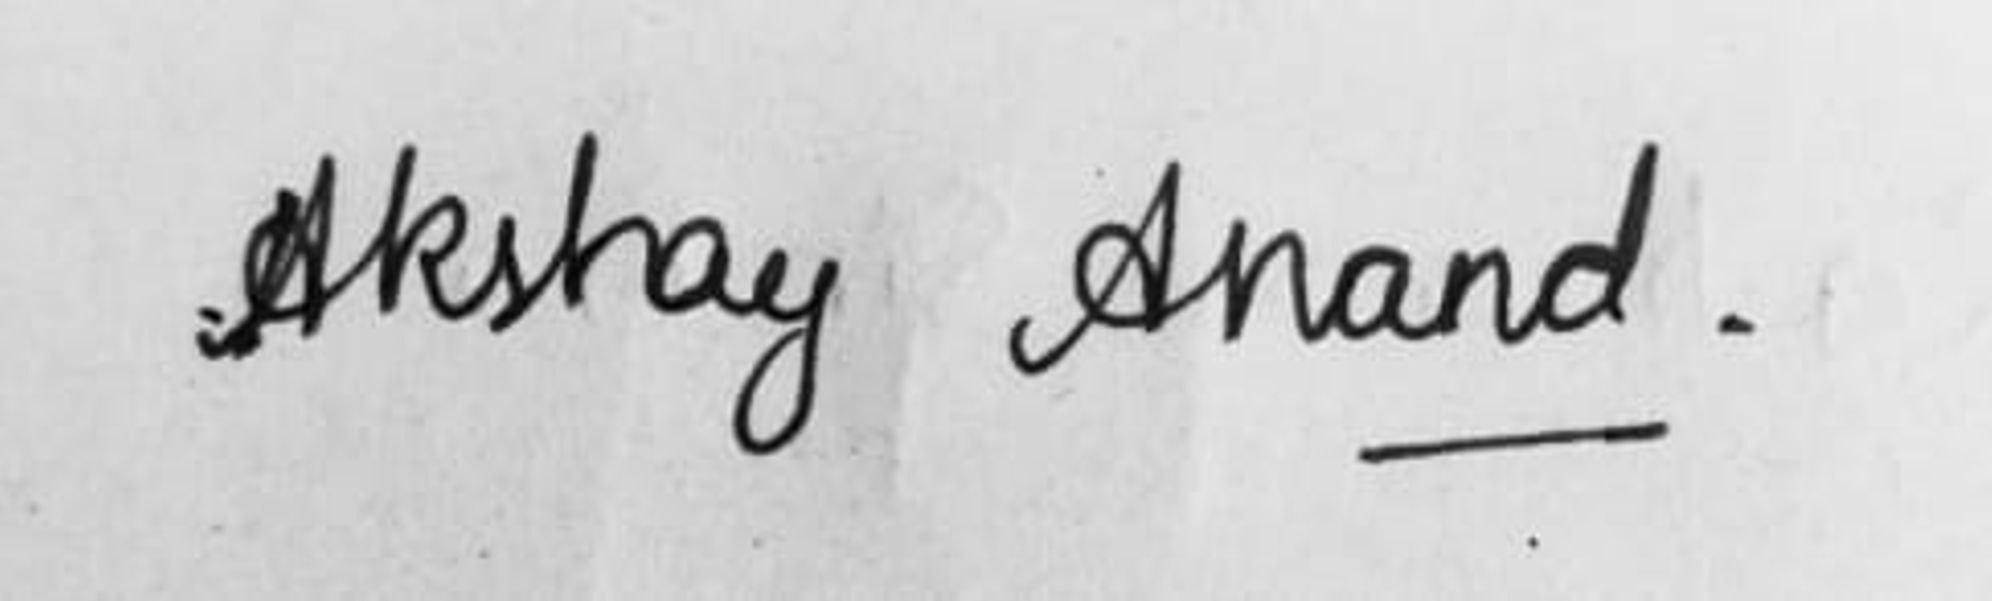 Akshay Anand.